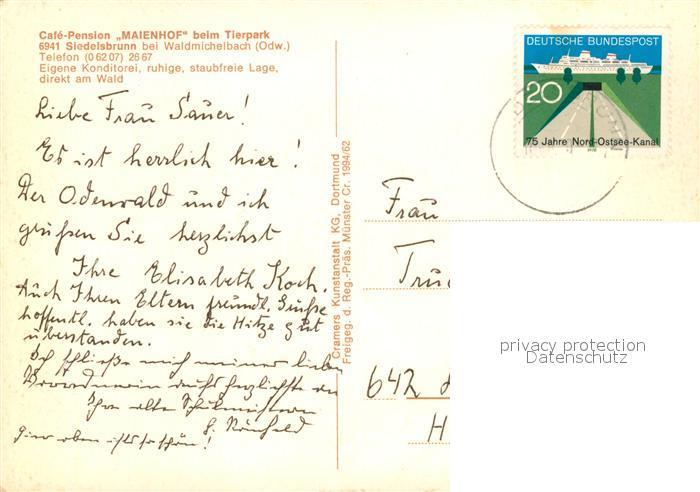 Café-Pension „MAIENHOF" beim Tierpark
6941 Siedelsbrunn bei Waldmichelbach (Odw.)
Telefon (0 62 07) 26 67
Eigene Konditorei, ruhige, staubfreie Lage,
direkt am Wald
Liebe Frau Sauer!
Es ist herrlich hier!
Der Odenwald und ich
grüßen Sie herzlichst
Ihre Elisabeth Koch.
Auch Ihren Eltern freundl. Grüße
hoffentl. haben sie die Hitze gut
überstanden.
Ich schließe mich meiner lieben
herzlichste an
Ihre alte
hier oben ists so schön!
Cramers Kunstanstalt KG, Dortmund
Freigeg. d. Reg.-Präs. Münster Cr. 1994/62
DEUTSCHE BUNDESPOST
20
75 Jahre Nord-Ostsee-Kanal
Frau
Trud
642
H
privacy protection
Datenschutz